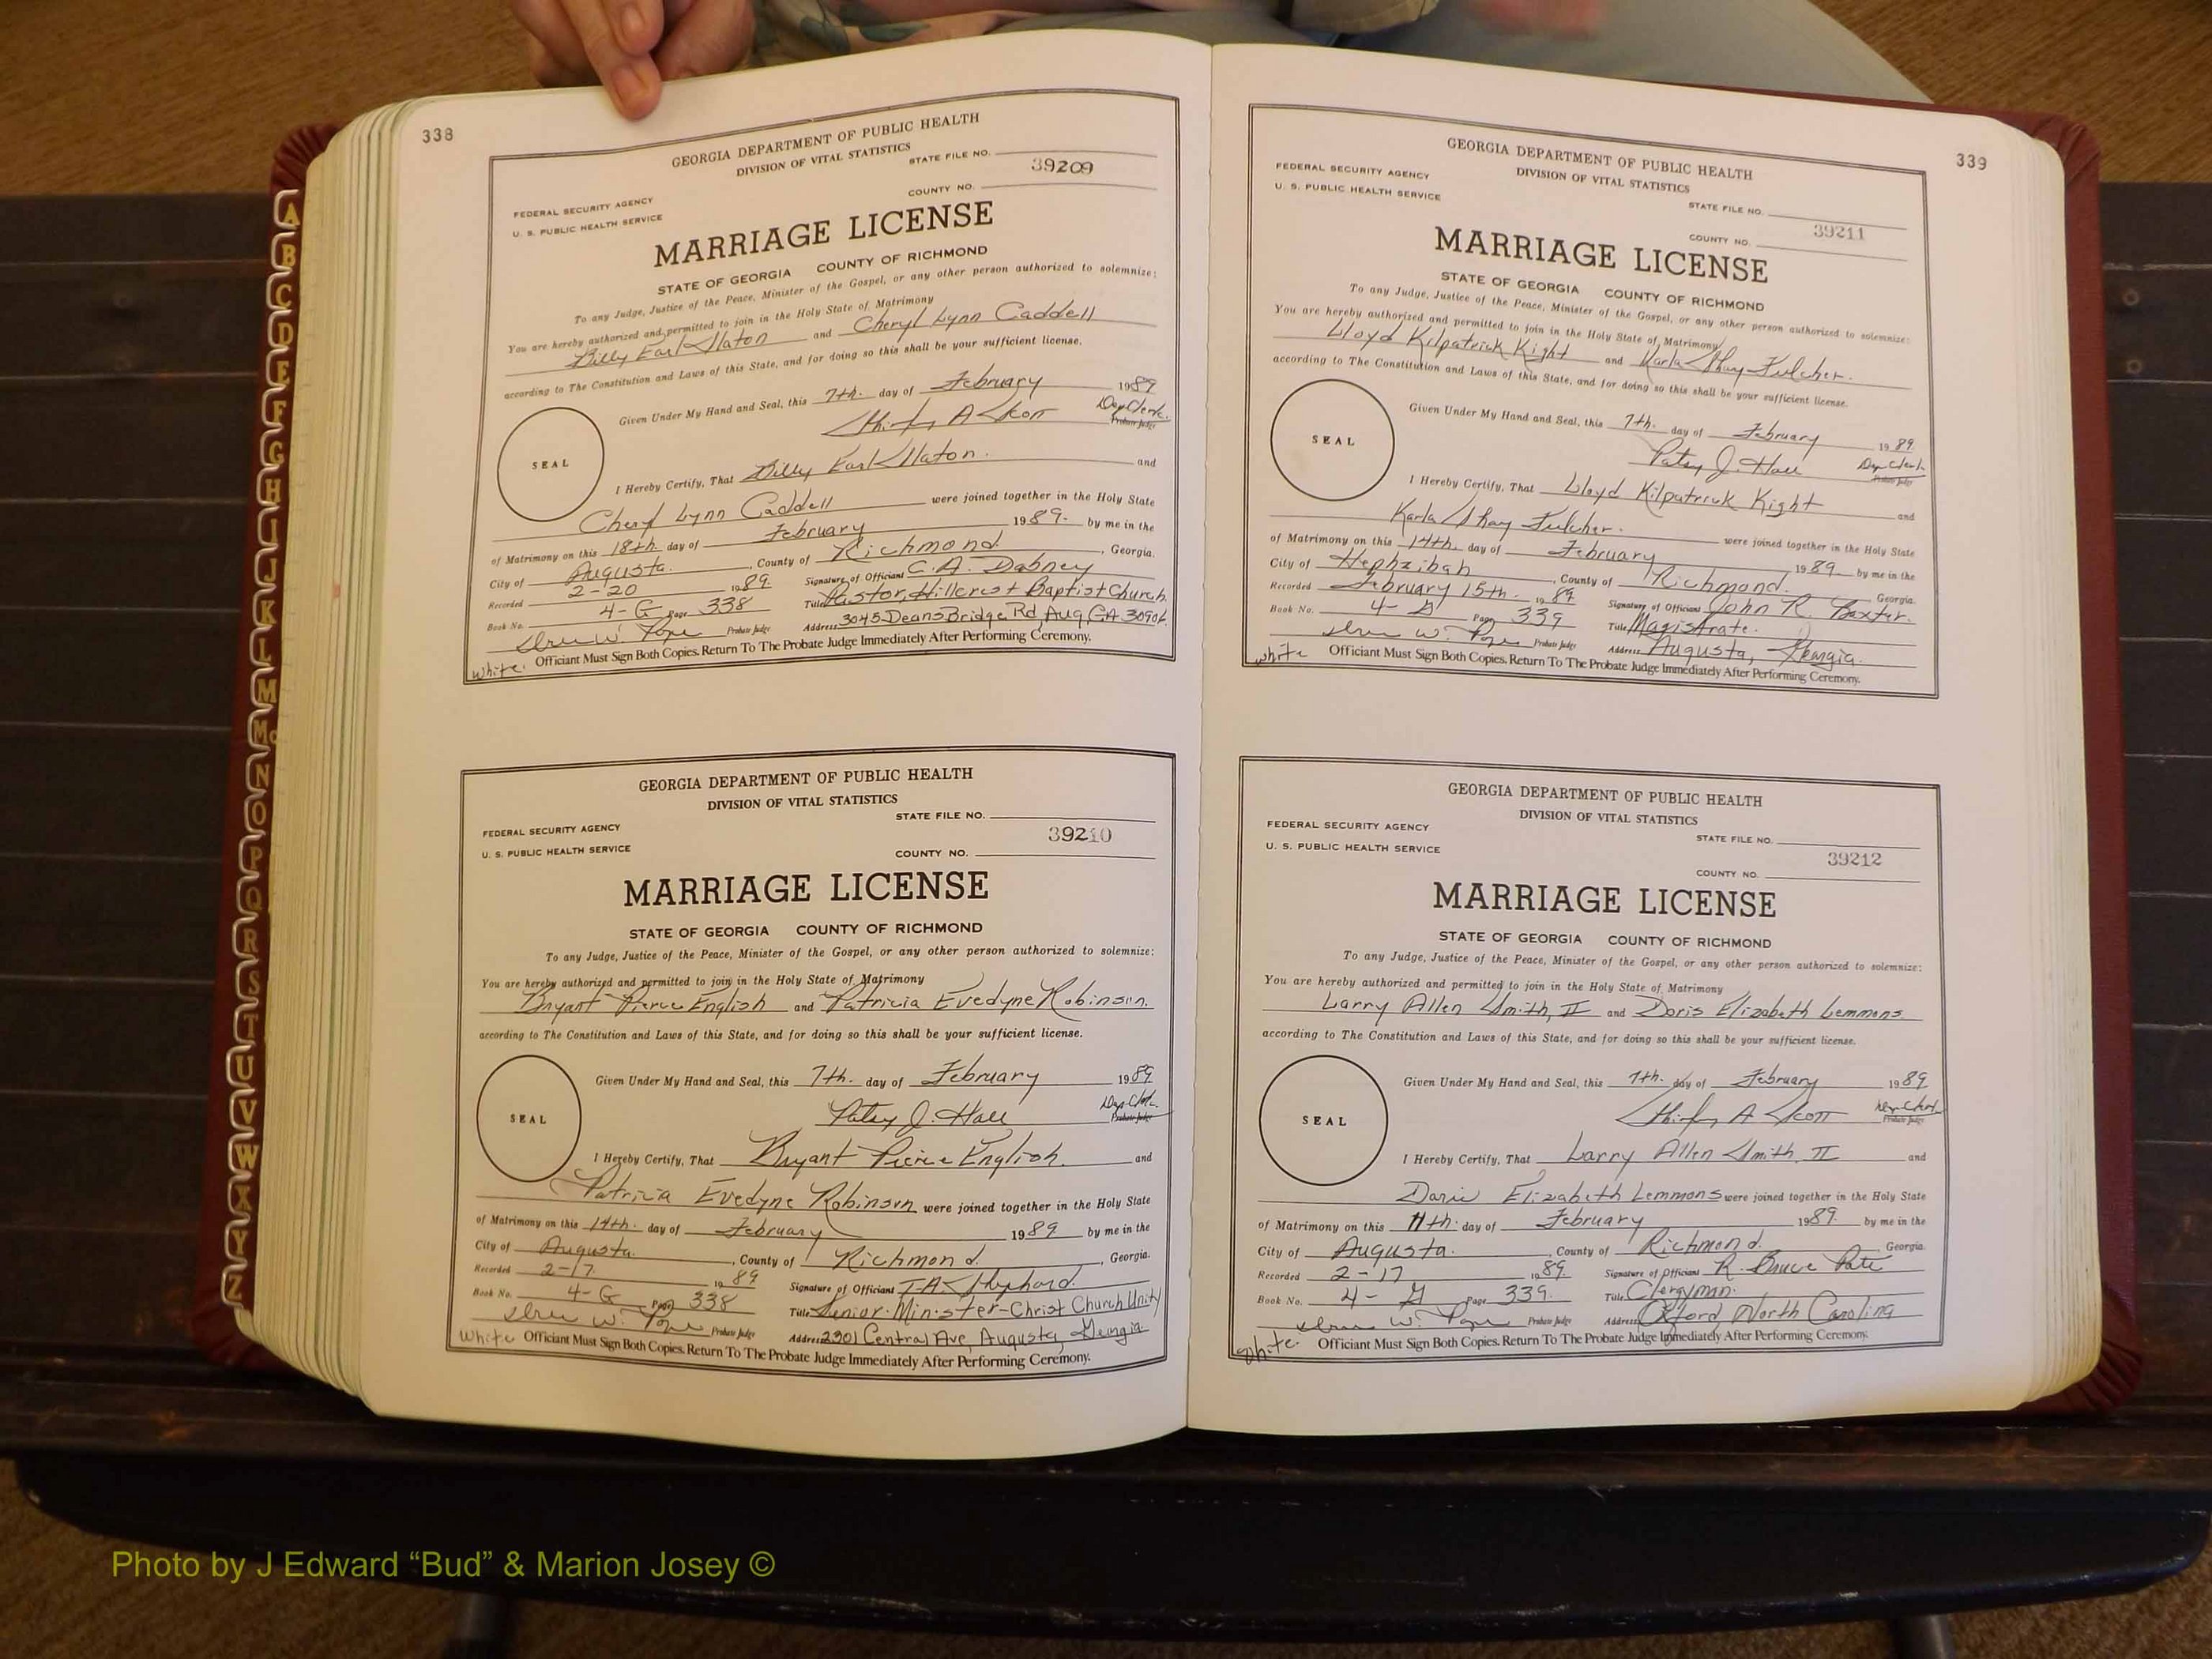 338
GEORGIA DEPARTMENT OF PUBLIC HEALTH
DIVISION OF VITAL STATISTICS
STATE FILE NO.
39209
COUNTY NO.
FEDERAL SECURITY AGENCY
U. S. PUBLIC HEALTH SERVICE
MARRIAGE LICENSE
STATE OF GEORGIA COUNTY OF RICHMOND
To any Judge, Justice of the Peace, Minister of the Gospel, or any other person authorized to solemnize:
You are hereby authorized and permitted to join in the Holy State of Matrimony
Billy Earl Slaton and Cheryl Lynn Caddell
according to The Constitution and Laws of this State, and for doing so this shall be your sufficient license.
Given Under My Hand and Seal, this 7th. day of February 1989
Shirley A Scott Dep Clerk.
Probate Judge
SEAL
I Hereby Certify, That Billy Earl Slaton. and
Cheryl Lynn Caddell were joined together in the Holy State
of Matrimony on this 18th day of February 1989. by me in the
City of Augusta. , County of Richmond , Georgia.
Recorded 2-20 1989. Signature of Official C.A. Dabney
Book No. 4-G Page 338 Title Pastor, Hillcrest Baptist Church
Probate Judge Address 3045 Deans Bridge Rd, Aug, GA 30906
White. Officiant Must Sign Both Copies. Return To The Probate Judge Immediately After Performing Ceremony.
GEORGIA DEPARTMENT OF PUBLIC HEALTH
DIVISION OF VITAL STATISTICS
STATE FILE NO.
39210
COUNTY NO.
FEDERAL SECURITY AGENCY
U. S. PUBLIC HEALTH SERVICE
MARRIAGE LICENSE
STATE OF GEORGIA COUNTY OF RICHMOND
To any Judge, Justice of the Peace, Minister of the Gospel, or any other person authorized to solemnize:
You are hereby authorized and permitted to join in the Holy State of Matrimony
Bryant Pierce English and Patricia Evedyne Robinson.
according to The Constitution and Laws of this State, and for doing so this shall be your sufficient license.
Given Under My Hand and Seal, this 7th. day of February 1989
Patsy J. Hall Dep Clerk
Probate Judge
SEAL
I Hereby Certify, That Bryant Pierce English. and
Patricia Evedyne Robinson were joined together in the Holy State
of Matrimony on this 14th. day of February 1989 by me in the
City of Augusta. , County of Richmond. , Georgia.
Recorded 2-17 1989 Signature of Official T-A Shephard.
Book No. 4-G Page 338 Title Senior Minister-Christ Church Unity
Probate Judge Address 2301 Central Ave, Augusta, Georgia
White Officiant Must Sign Both Copies. Return To The Probate Judge Immediately After Performing Ceremony.
339
GEORGIA DEPARTMENT OF PUBLIC HEALTH
DIVISION OF VITAL STATISTICS
STATE FILE NO.
39211
COUNTY NO.
FEDERAL SECURITY AGENCY
U. S. PUBLIC HEALTH SERVICE
MARRIAGE LICENSE
STATE OF GEORGIA COUNTY OF RICHMOND
To any Judge, Justice of the Peace, Minister of the Gospel, or any other person authorized to solemnize:
You are hereby authorized and permitted to join in the Holy State of Matrimony
Lloyd Kilpatrick Kight and Karla Shay Fulcher.
according to The Constitution and Laws of this State, and for doing so this shall be your sufficient license.
Given Under My Hand and Seal, this 7th. day of February 1989
Patsy J. Hall Dep Clerk
Probate Judge
SEAL
I Hereby Certify, That Lloyd Kilpatrick Kight and
Karla Shay Fulcher. were joined together in the Holy State
of Matrimony on this 14th. day of February 1989 by me in the
City of Hephzibah , County of Richmond. Georgia.
Recorded February 15th. 1989 Signature of Official John R. Baxter.
Book No. 4-G Page 339 Title Magistrate.
Probate Judge Address Augusta, Georgia.
White Officiant Must Sign Both Copies. Return To The Probate Judge Immediately After Performing Ceremony.
GEORGIA DEPARTMENT OF PUBLIC HEALTH
DIVISION OF VITAL STATISTICS
STATE FILE NO.
39212
COUNTY NO.
FEDERAL SECURITY AGENCY
U. S. PUBLIC HEALTH SERVICE
MARRIAGE LICENSE
STATE OF GEORGIA COUNTY OF RICHMOND
To any Judge, Justice of the Peace, Minister of the Gospel, or any other person authorized to solemnize:
You are hereby authorized and permitted to join in the Holy State of Matrimony
Larry Allen Smith, II and Doris Elizabeth Lemmons
according to The Constitution and Laws of this State, and for doing so this shall be your sufficient license.
Given Under My Hand and Seal, this 7th. day of February 1989
Shirley A Scott Dep Clerk
Probate Judge
SEAL
I Hereby Certify, That Larry Allen Smith, II and
Doris Elizabeth Lemmons were joined together in the Holy State
of Matrimony on this 11th. day of February 1989. by me in the
City of Augusta. , County of Richmond. , Georgia.
Recorded 2-17 1989. Signature of Official R. Bruce Pate
Book No. 4-G Page 339. Title Clergyman.
Probate Judge Address Oxford, North Carolina
White. Officiant Must Sign Both Copies. Return To The Probate Judge Immediately After Performing Ceremony.
A
B
C
D
E
F
G
H
I
J
K
L
M
Mc
N
O
P
Q
R
S
T
U
V
W
X
Y
Z
Photo by J Edward “Bud” & Marion Josey ©